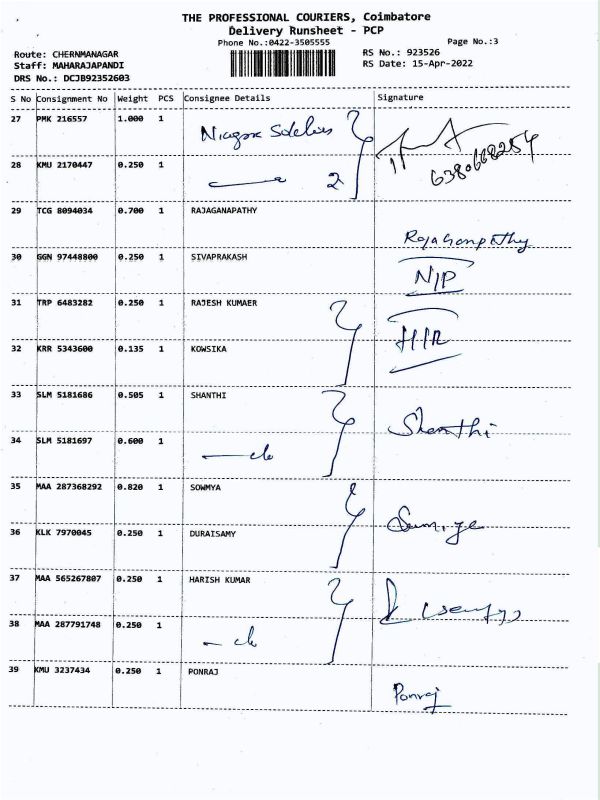 THE PROFESSIONAL COURIERS, Coimbatore
Delivery Runsheet - PCP
Phone No.:0422-3505555
Page No.:3
Route: CHERNMANAGAR
RS No.: 923526
Staff: MAHARAJAPANDI
RS Date: 15-Apr-2022
DRS No.: DCJB92352603
S No Consignment No Weight PCS Consignee Details Signature
27 PMK 216557 1.000 1
28 KMU 2170447 0.250 1 2 6380668254
29 TCG 8094034 0.700 1 RAJAGANAPATHY
Rajaganpathy
30 GGN 97448800 0.250 1 SIVAPRAKASH
N/P
31 TRP 6483282 0.250 1 RAJESH KUMAER
32 KRR 5343600 0.135 1 KOWSIKA
33 SLM 5181686 0.505 1 SHANTHI
Shanthi
34 SLM 5181697 0.600 1
35 MAA 287368292 0.820 1 SOWMYA
36 KLK 7970045 0.250 1 DURAISAMY
37 MAA 565267807 0.250 1 HARISH KUMAR
38 MAA 287791748 0.250 1
39 KMU 3237434 0.250 1 PONRAJ
Ponraj